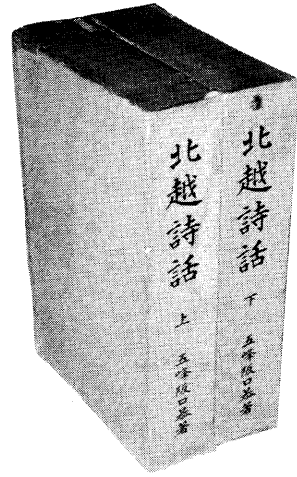 北越詩話 下 五峰阪口恭著
北越詩話 上 五峰阪口恭著